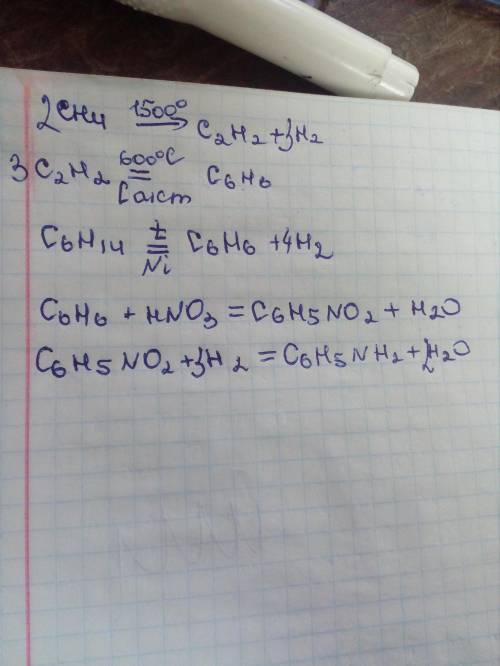 2CH4 1500° → C2H2 + 3H2
3C2H2 600°C = Cакт C6H6
C6H14 t = Ni C6H6 + 4H2
C6H6 + HNO3 = C6H5NO2 + H2O
C6H5NO2 + 3H2 = C6H5NH2 + 2H2O